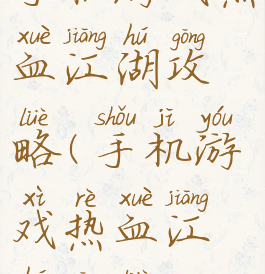 xuè jiāng hú gōng
血江湖攻
lüè shǒu jī yóu
略(手机游
xì rè xuè jiāng
戏热血江